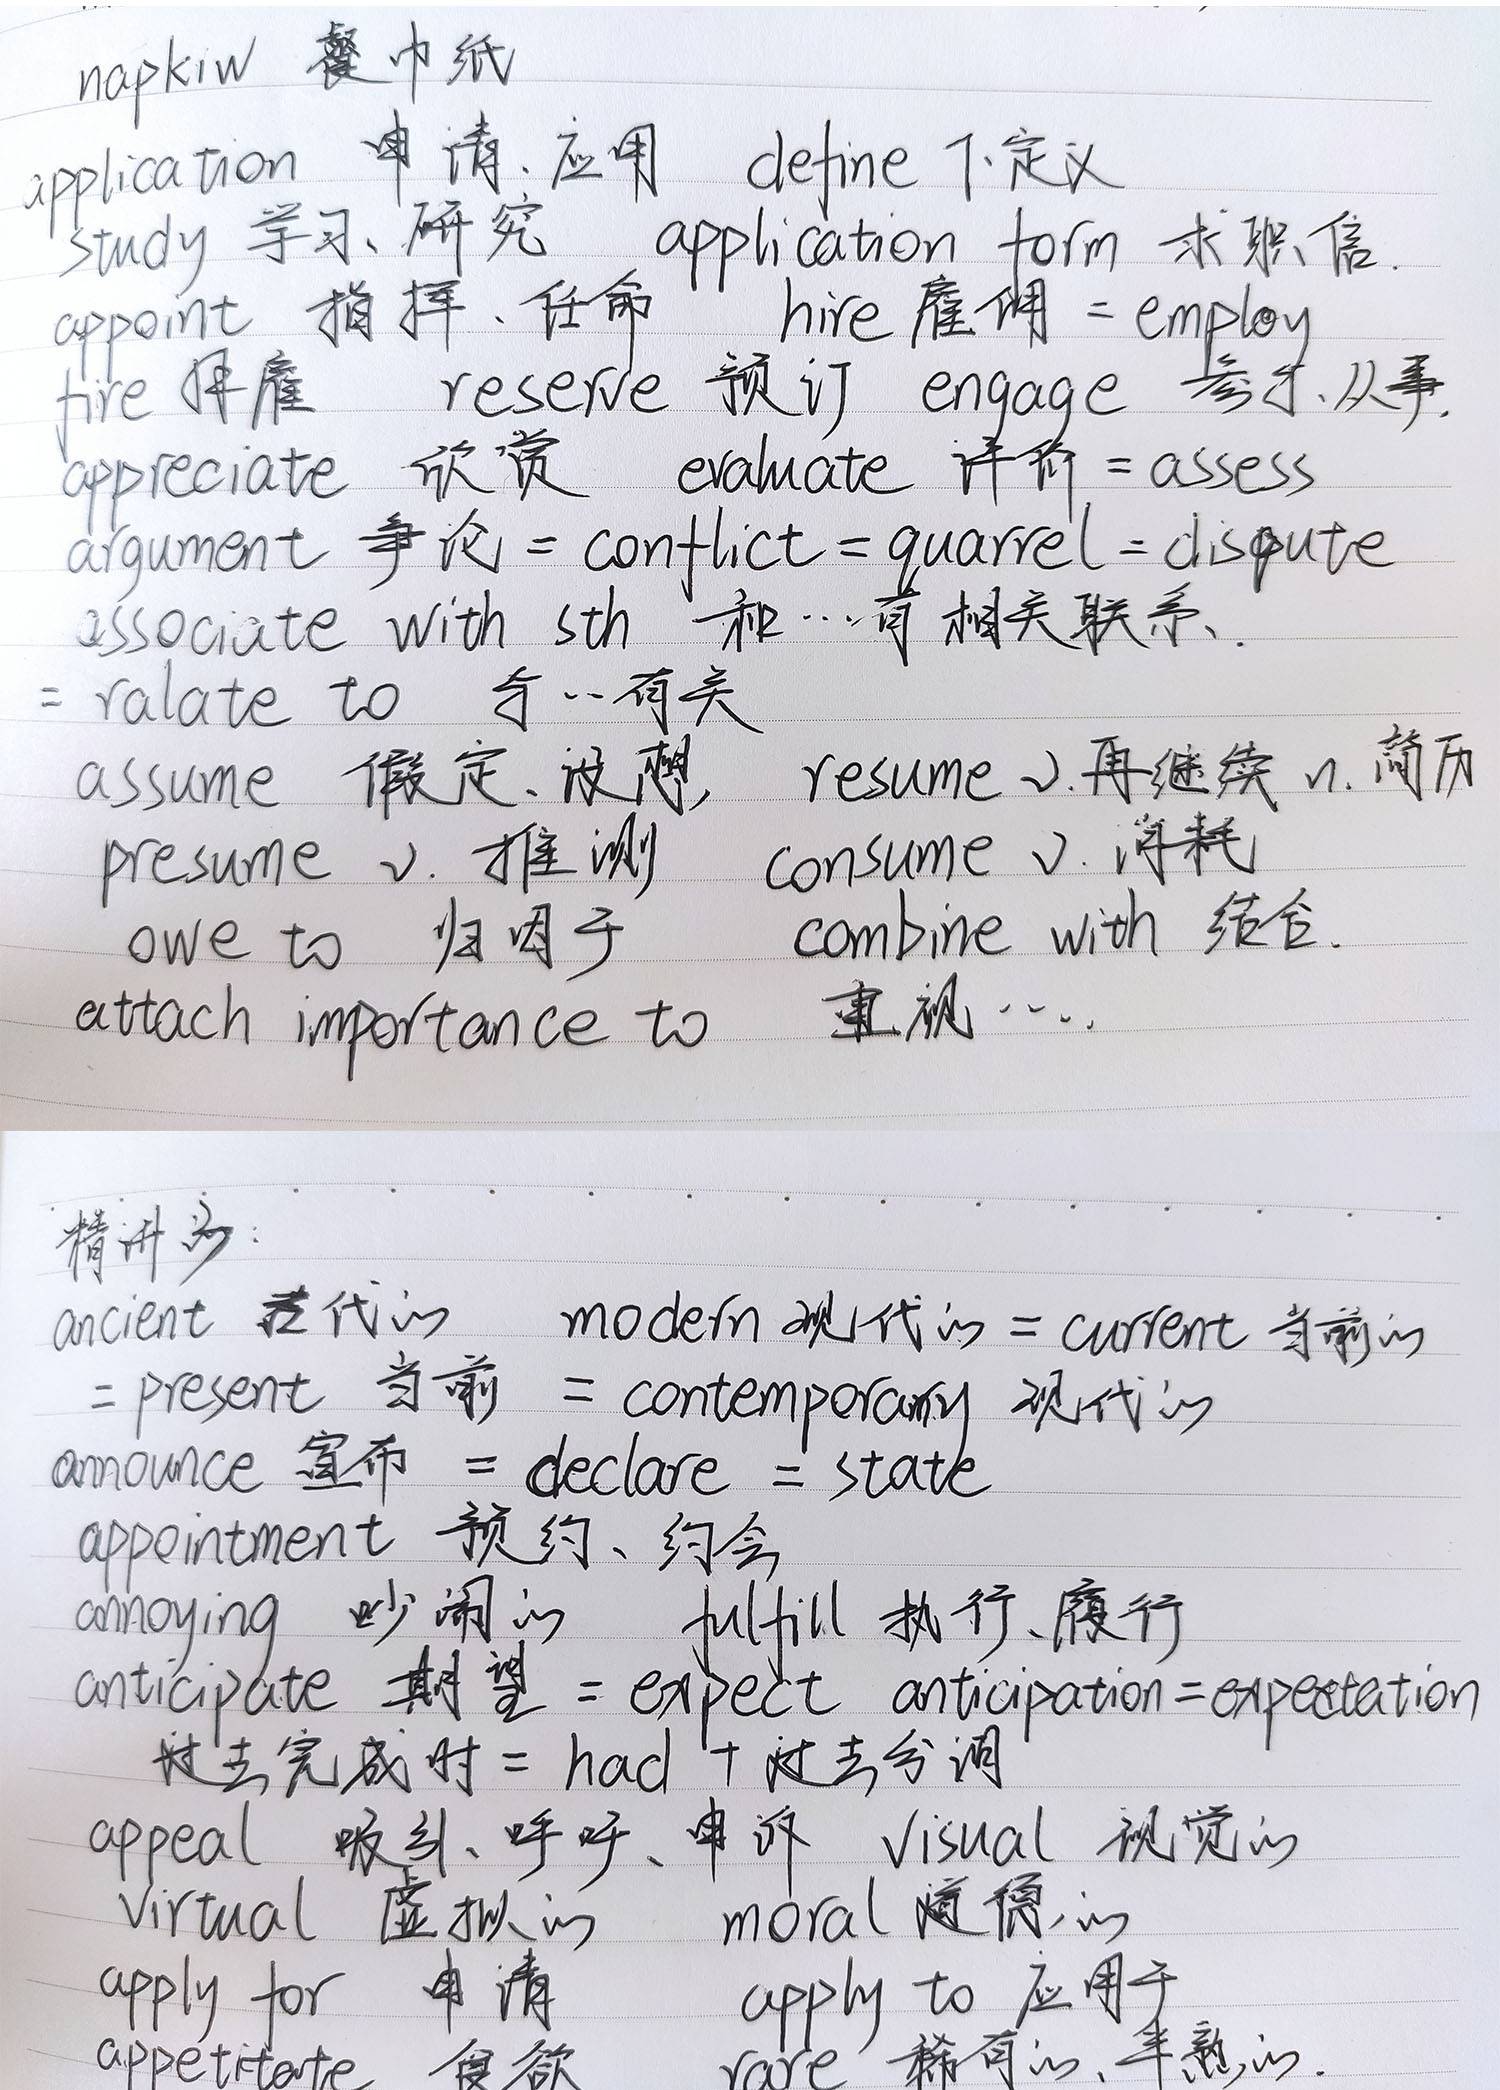 napkiw 餐巾纸
application 申请、应用 define 下定义
study 学习、研究 application form 求职信.
appoint 指挥、任命 hire 雇佣 = employ
fire 解雇 reserve 预订 engage 参与、从事.
appreciate 欣赏 evaluate 评价 = assess
argument 争论 = conflict = quarrel = dispute
associate with sth 和…有相关联系、.
= ralate to 与…有关
assume 假定、设想, resume v.再继续 n.简历
presume v. 推测 consume v. 消耗
owe to 归因于 combine with 结合.
attach importance to 重视….
精讲词:
ancient 古代的 modern 现代的 = current 当前的
= present 当前 = contemporary 现代的
announce 宣布 = declare = state
appointment 预约、约会
annoying 吵闹的 fulfill 执行、履行
anticipate 期望 = expect anticipation = expectation
过去完成时 = had + 过去分词
appeal 吸引、呼吁、申诉 visual 视觉的
virtual 虚拟的 moral 道德的
apply for 申请 apply to 应用于
食欲 rare 稀有的、半熟的.